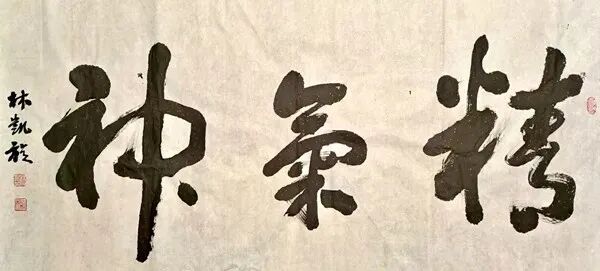 精氣神
林凱旋